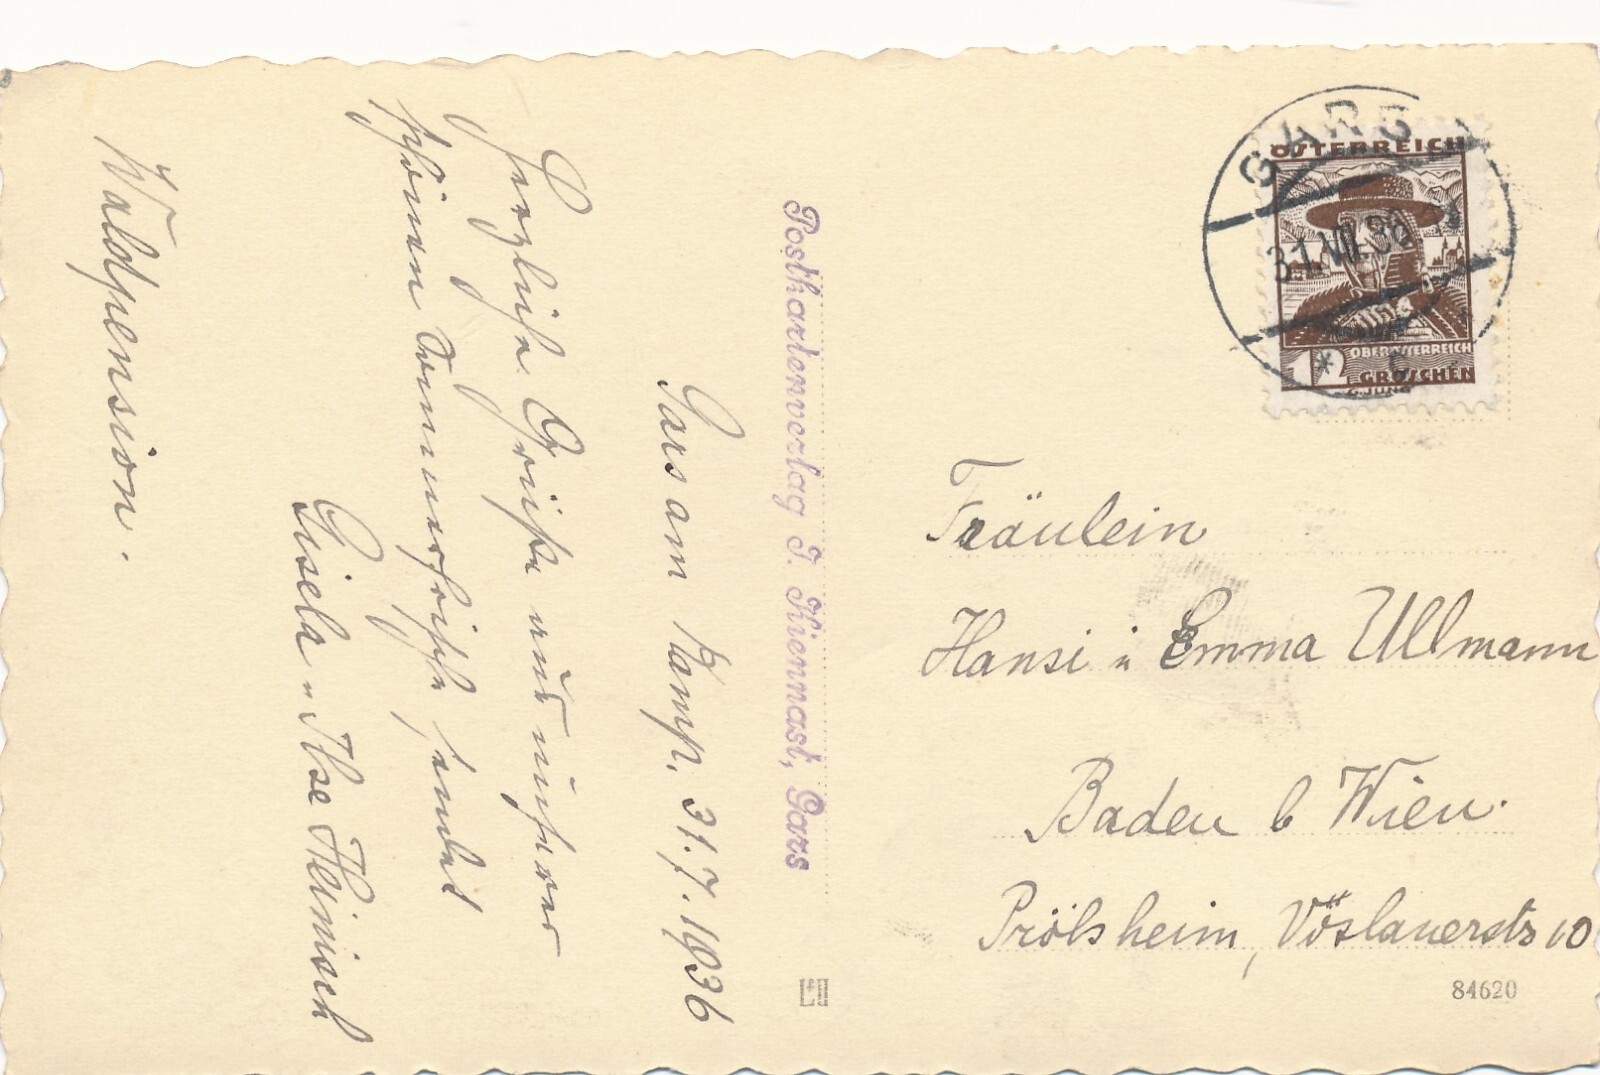 Gars am Kamp, 31.7.1936
Herzliche Grüße aus unserer
schönen Sommerfrische sendet
Gisela u Ilse Heinisch
Waldpension.
Postkartenverlag J. Kiennast, Gars
GARS
31.VII.36
ÖSTERREICH
12
OBERÖSTERREICH
GROSCHEN
Fräulein
Hansi u Emma Ullmann
Baden b Wien.
Prölsheim, Vöslauerstr 10
84620